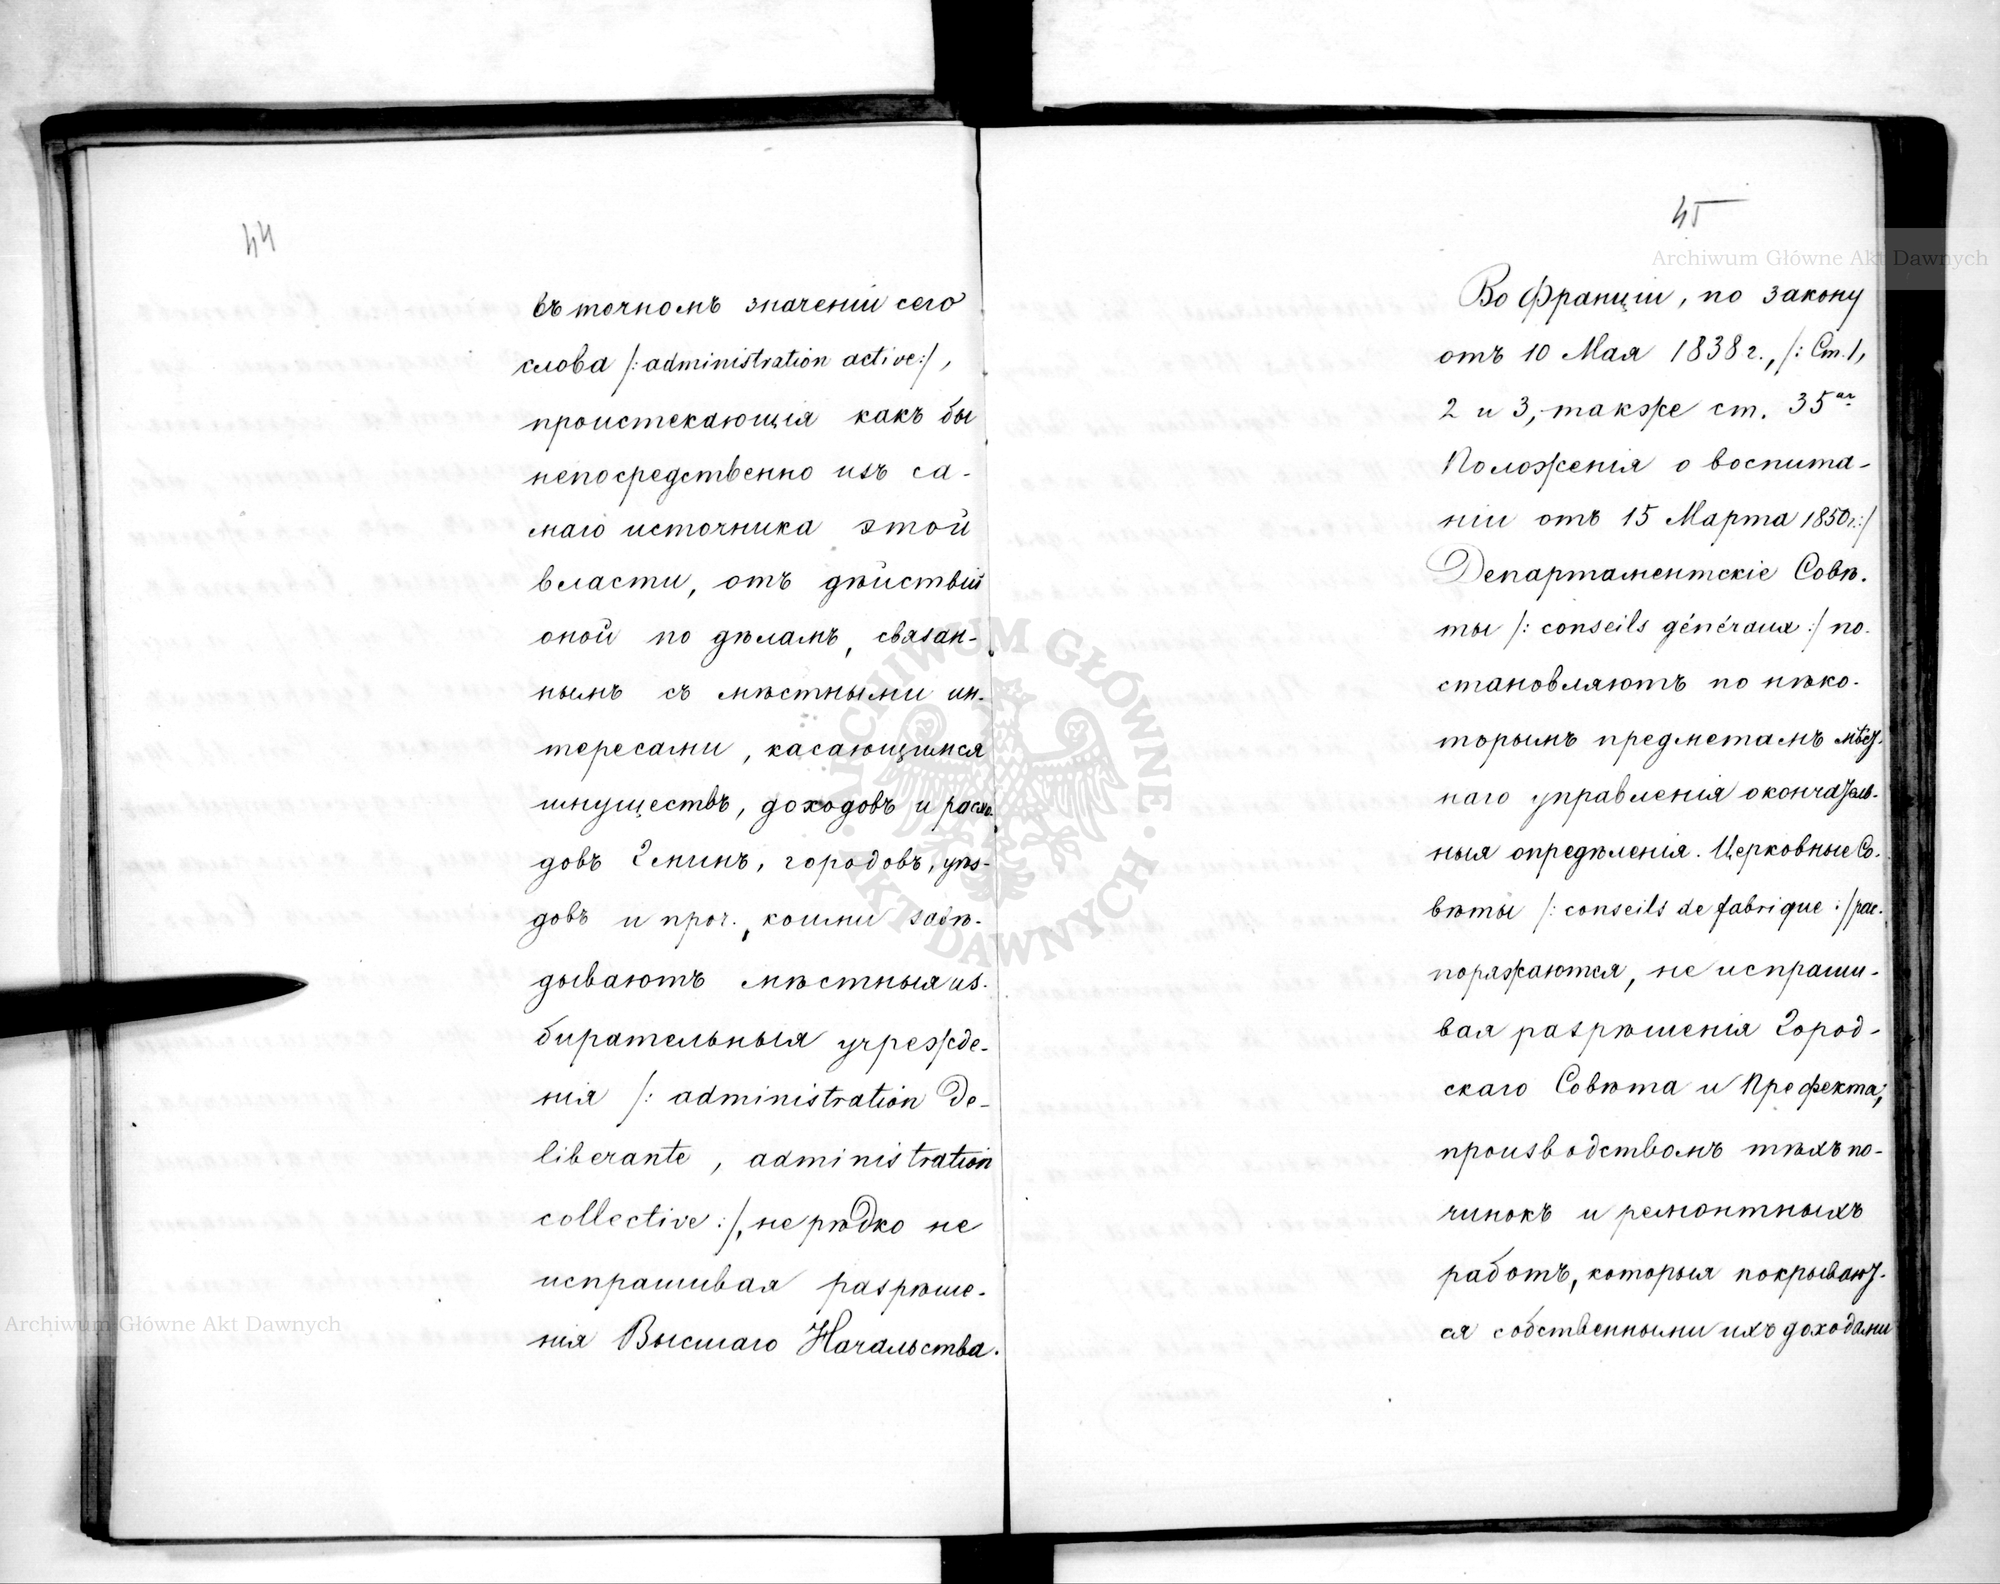 44
въ точномъ значеніи сего
слова /: administration active :/,
проистекающія какъ бы
непосредственно изъ са-
маго источника этой
власти, отъ дѣйствій
оной по дѣламъ, связан-
нымъ съ мѣстными ин-
тересами, касающимся
имуществъ, доходовъ и расхо-
довъ Гминъ, городовъ, уѣз-
довъ и проч., коими завѣ-
дываютъ мѣстныя из-
бирательныя учрежде-
нія /: administration de-
liberante, administration
collective :/, не рѣдко не
испрашивая разрѣше-
нія Высшаго Начальства.
45
Во Франціи, по закону
отъ 10 Мая 1838 г., /: Ст. 1,
2 и 3, также ст. 35ая
Положенія о воспита-
ніи отъ 15 Марта 1850 г. :/
Департаментскіе Совѣ-
ты /: conseils généraux :/ по-
становляютъ по нѣко-
торымъ предметамъ мѣст-
наго управленія окончатель-
ныя опредѣленія. Церковные Со-
вѣты /: conseils de fabrique :/ рас-
поряжаются, не испраши-
вая разрѣшенія Город-
скаго Совѣта и Префекта,
производствомъ тѣхъ по-
чинокъ и ремонтныхъ
работъ, которыя покрывают-
ся собственными ихъ доходами
Archiwum Główne Akt Dawnych
ARCHIWUM GŁÓWNE AKT DAWNYCH
Archiwum Główne Akt Dawnych